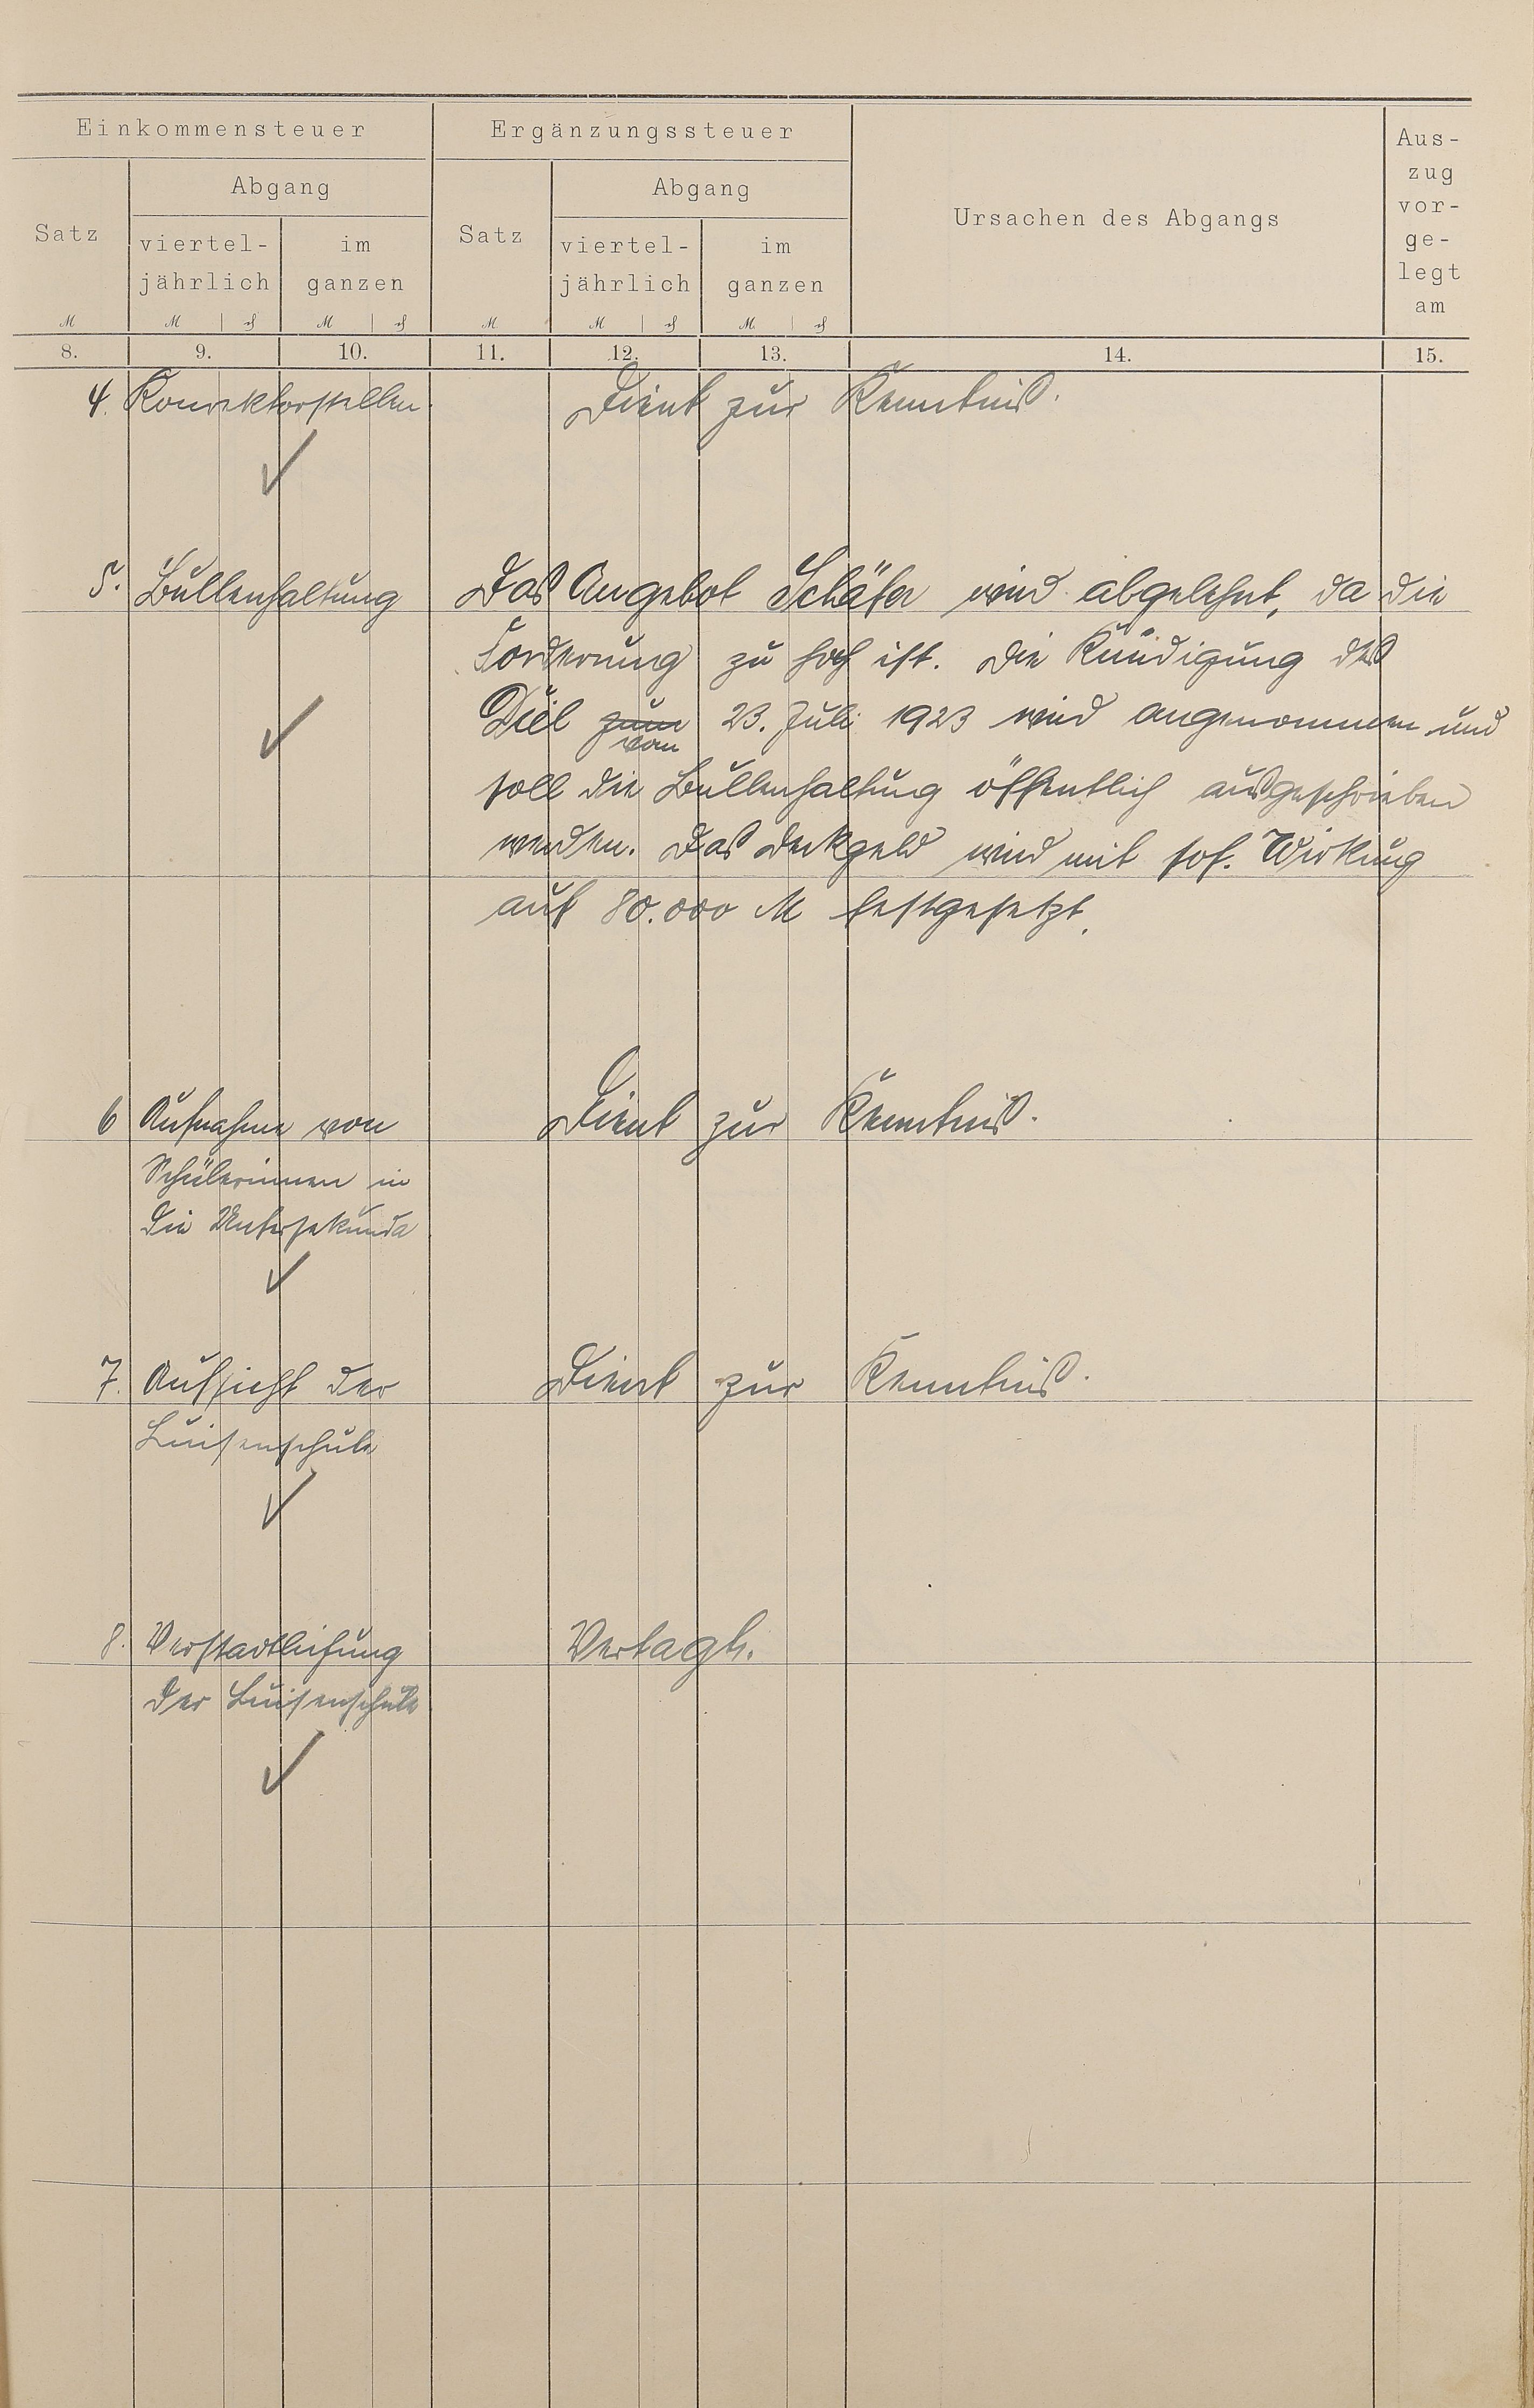 Einkommensteuer
Ergänzungssteuer
Ursachen des Abgangs
Aus-
zug
vor-
ge-
legt
am
Satz
Abgang
viertel-
jährlich
im
ganzen
Satz
Abgang
viertel-
jährlich
im
ganzen
M
M
₰
M
₰
M
M
₰
M
₰
8.
9.
10.
11.
12.
13.
14.
15.
4. Konrektorstellen. Dient zur Kenntnis.
5. Bullenhaltung Das Angebot Schäfer wird abgelehnt, da die
Forderung zu hoch ist. Die Kündigung des
Diel zum 23. Juli 1923 wird angenommen und
vom
soll die Bullenhaltung öffentlich ausgeschrieben
werden. Das Deckgeld wird mit sof. Wirkung
auf 80.000 M festgesetzt.
6 Aufnahme von Dient zur Kenntnis.
Schülerinnen in
die Untersekunda
7. Aufsicht der Dient zur Kenntnis.
Luisenschule
8. Verstaatlichung Vertagt.
der Luisenschule